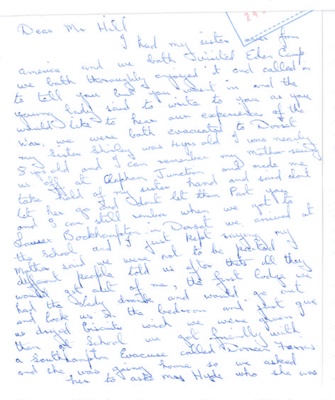 Dear Mr Hill
I had my sister over from
america and we both visited Eden Camp
we both thoroughly enjoyed it and called in
to tell you but you went in and the
young lady said to write to you as you
would like to hear our experiences of the
War. we were both evacuated to Dorset
my Sister Shirley was 4yrs old I was nearly
8 yrs old and I can remember my Mother seeing
us off at Clapham Junction and made me
take hold of my sister hand and said dont
let her go and dont let them Part you
and I can still remember when we got to
Lower Bockhampton in Dorset we arrived at
the School and I just kept saying my
Mother said we were not to be parted
different people told us after thats all they
would get out of me, the first lodge we
had the lady drink and would go out
and lock us in the bedroom and just give
us dryed biscuits
then at School we got friendly with
a Southampton Evacuee called Doreen
and she was going home, so we asked
her to ask Mrs who she was